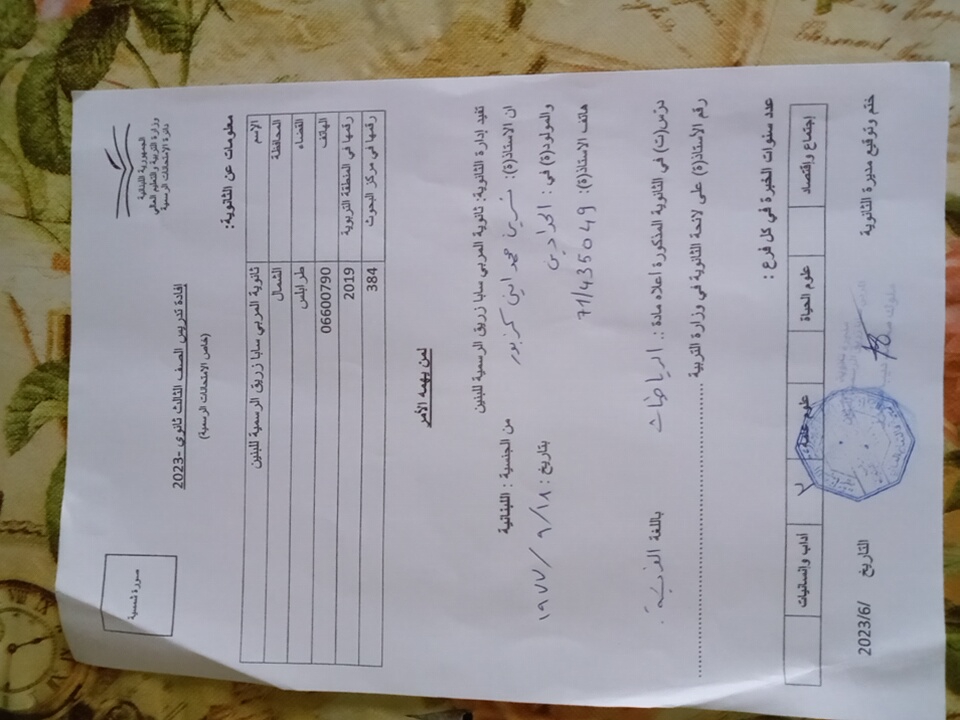 الجمهورية اللبنانية
وزارة التربية والتعليم العالي
دائرة الامتحانات الرسمية
إفادة تدريس الصف الثالث ثانوي -2023
(خاص الامتحانات الرسمية)
صورة شمسية
معلومات عن الثانوية:
الإسم ثانوية المربي سابا زريق الرسمية للبنين
المحافظة الشمال
القضاء طرابلس
الهاتف 06600790
رقمها في المنطقة التربوية 2019
رقمها في مركز البحوث 384
لمن يهمه الأمر
تفيد إدارة الثانوية: ثانوية المربي سابا زريق الرسمية للبنين
ان الاستاذ(ة): نسرين محمد امين كزبور من الجنسية : اللبنانية
والمولود(ة) في : الحدادين بتاريخ : ١٩٧٧/٩/١٨
هاتف الاستاذ(ة): 71/435049
درّس(ت) في الثانوية المذكورة أعلاه مادة :. الرياضيات باللغة الفرنسية.
رقم الأستاذ(ة) على لائحة الثانوية في وزارة التربية
عدد سنوات الخبرة في كل فرع :
إجتماع وإقتصاد علوم الحياة علوم عامة اداب وإنسانيات
ختم وتوقيع مديرة الثانوية التاريخ 2023/6/